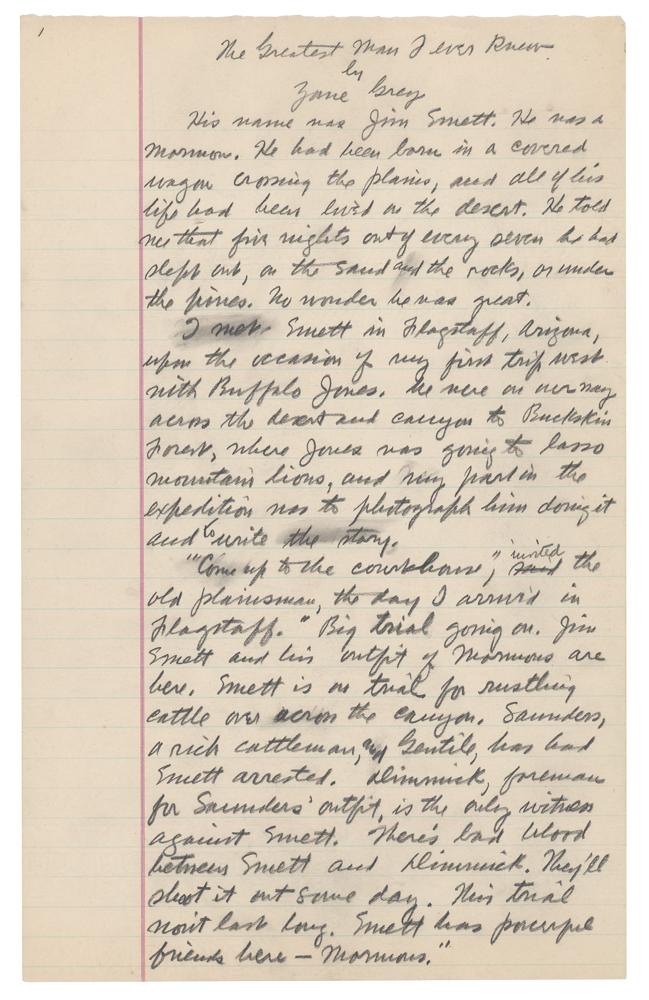 1
The Greatest Man I ever Knew
by
Zane Grey
His name was Jim Emett. He was a
Mormon. He had been born in a covered
wagon crossing the plains, and all of his
life had been lived on the desert. He told
me that five nights out of every seven he had
slept out, on the sand and the rocks, or under
the pines. No wonder he was great.
I met Emett in Flagstaff, Arizona,
upon the occasion of my first trip west
with Buffalo Jones. We were on our way
across the desert and canyon to Buckskin
Forest, where Jones was going to lasso
mountain lions, and my part in the
expedition was to photograph him doing it
and to write the story.
"Come up to the courthouse," said invited the
old plainsman, the day I arrived in
Flagstaff. "Big trial going on. Jim
Emett and his outfit of Mormons are
here. Emett is on trial for rustling
cattle over across the canyon. Saunders,
a rich cattleman, and Gentile, has had
Emett arrested. Dimmick, foreman
for Saunders' outfit, is the only witness
against Emett. There's bad blood
between Emett and Dimmick. They'll
shoot it out some day. This trial
won't last long. Emett has powerful
friends here – Mormons."